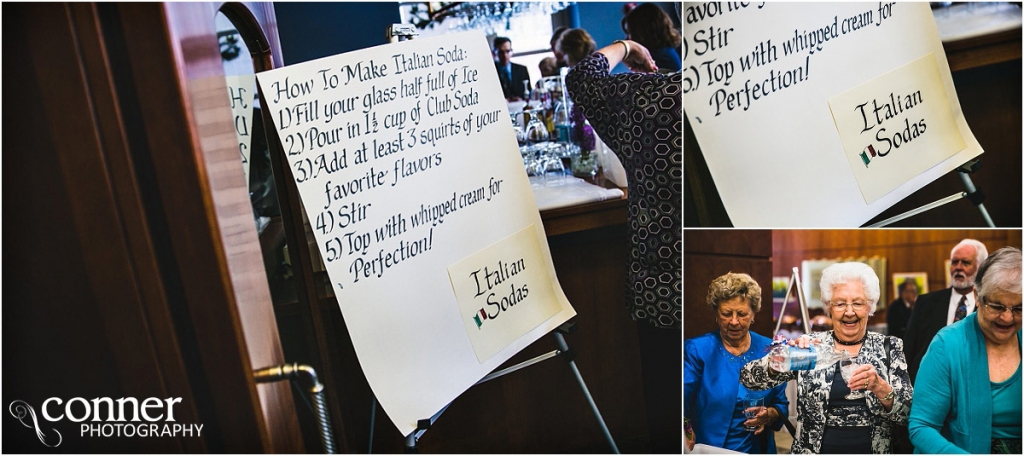 How To Make Italian Soda:
1.) Fill your glass half full of Ice
2.) Pour in 1 1/2 cup of Club Soda
3.) Add at least 3 squirts of your
favorite flavors
4.) Stir
5.) Top with whipped cream for
Perfection!
Italian
Sodas
favorite flavors
4.) Stir
5.) Top with whipped cream for
Perfection!
Italian
Sodas
conner
PHOTOGRAPHY